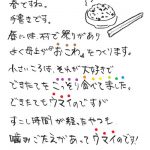 春ですね。
今書きです。
昼には、村で祭りがあり
よく母上が"おこわ"をつくります。
小さいころは、それが大好きで
できたてをこっそり食べてました。
できたてもウマイのですが
すこし時間が経ったやつも
噛みごたえがあってウマイのでり!